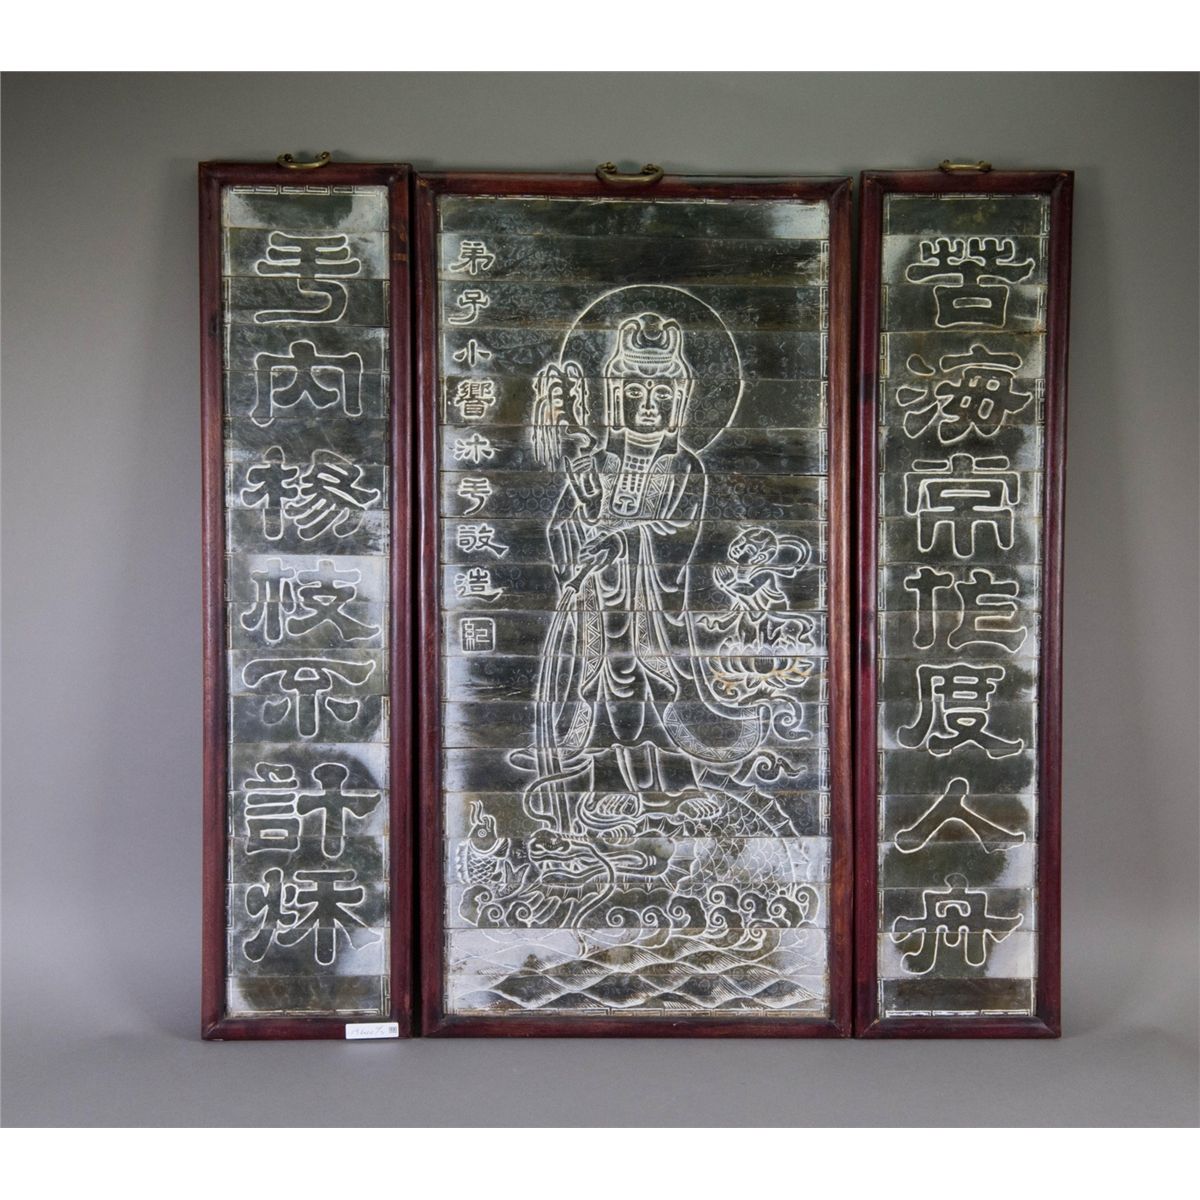 苦海常作度人舟
弟子小響沐手敬造
紀
手內楊枝不計秋